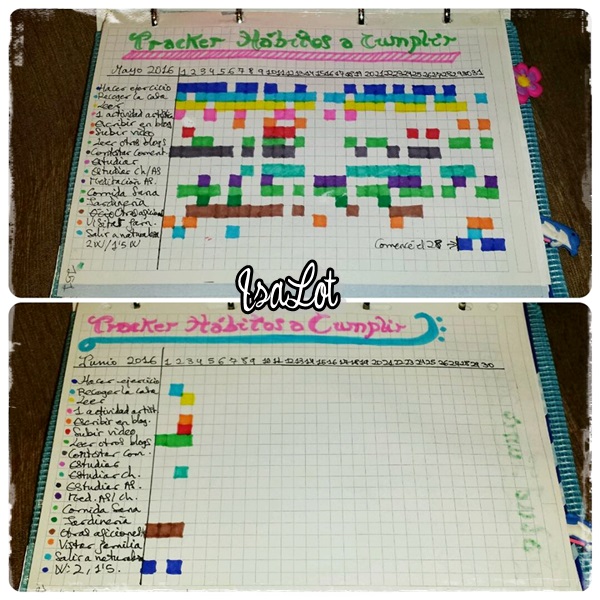 Tracker Hábitos a Cumplir
Mayo 2016 1 2 3 4 5 6 7 8 9 10 11 12 13 14 15 16 17 18 19 20 21 22 23 24 25 26 27 28 29 30 31
Hacer ejercicio
Recoger la casa
Leer
1 actividad artist.
Escribir en blog
Subir video
Leer otros blogs
Contestar coment.
Estudiar
Estudiar Ch/AS
Meditación AS.
Comida Sana
Jardinería
Visitar fam.
Salir a naturaleza
2W/1'5W
Comencé el 28
IsaLot
Tracker Hábitos a Cumplir
Junio 2016 1 2 3 4 5 6 7 8 9 10 11 12 13 14 15 16 17 18 19 20 21 22 23 24 25 26 27 28 29 30
Hacer ejercicio
Recoger la casa
Leer
1 actividad artist
Escribir en blog.
Subir video
Leer otros blogs
Contestar com.
Estudias
Estudiar ch.
Estudiar AS.
Med. AS/Ch.
Comida Sana
Jardinería
Otras aficiones
Visitar familia
Salir a naturaleza
W: 2, 1'5.